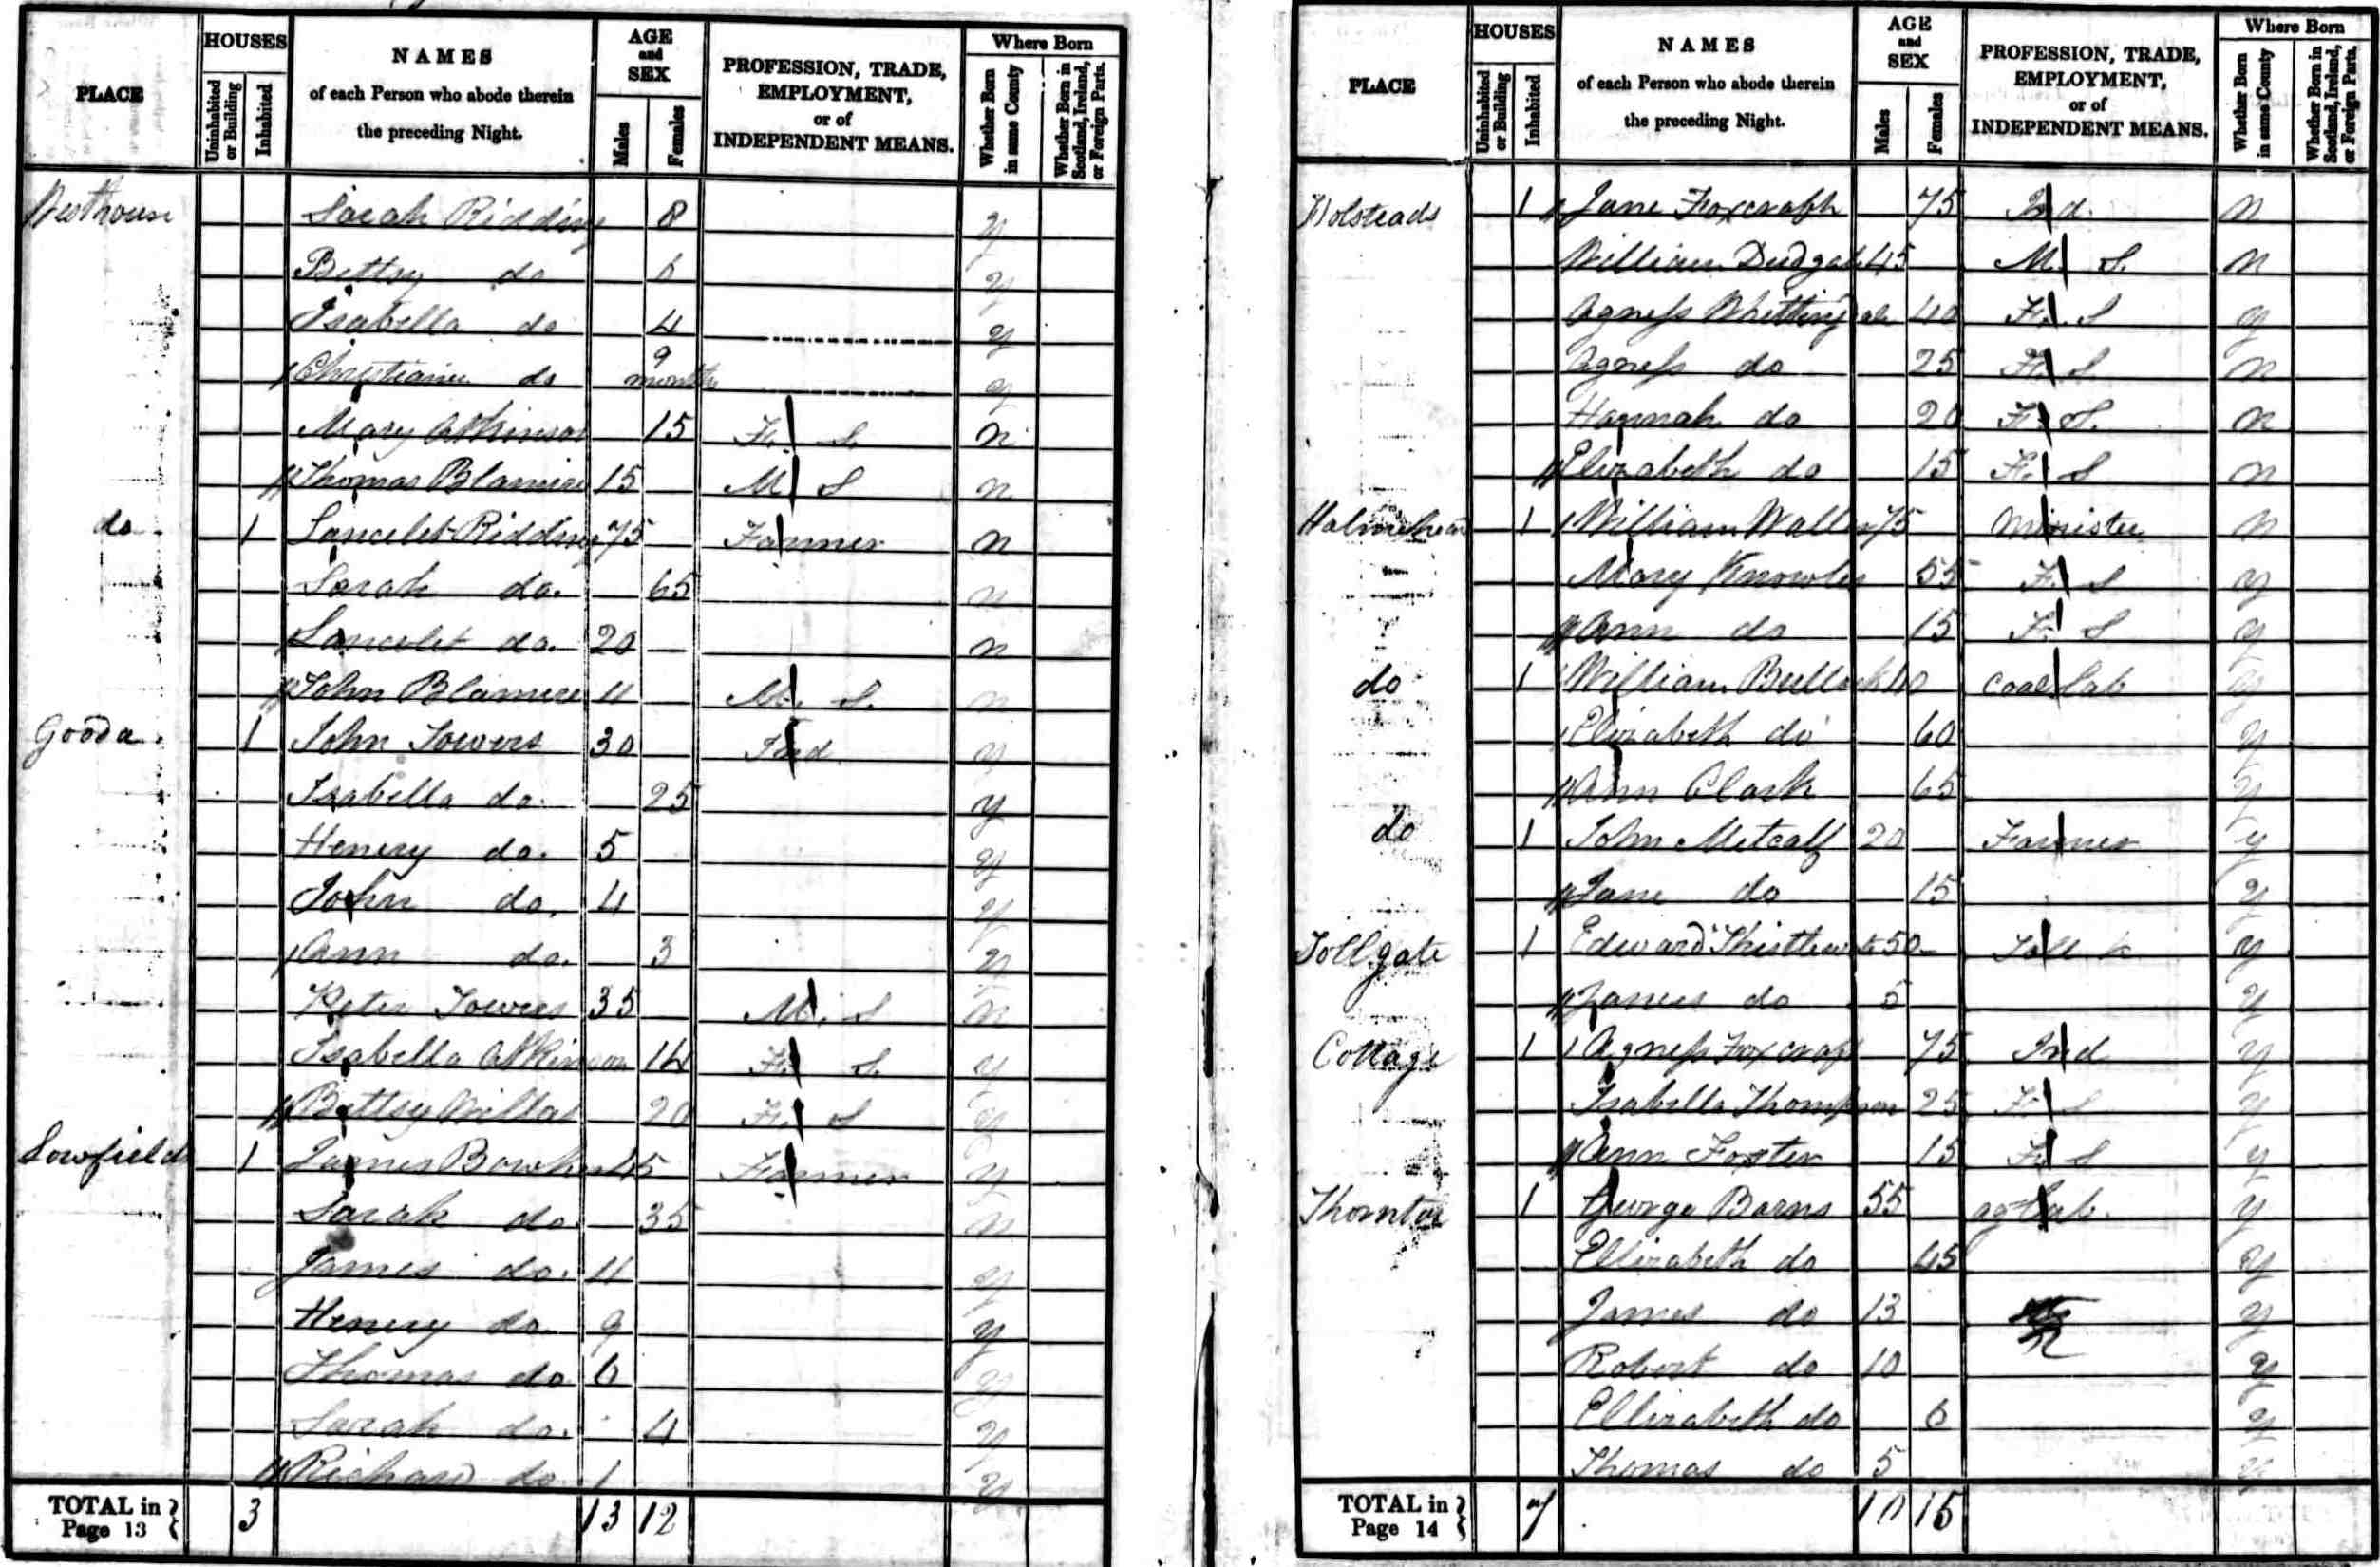 PLACE HOUSES Uninhabited or Building Inhabited NAMES of each Person who abode therein the preceding Night. AGE and SEX Males Females PROFESSION, TRADE, EMPLOYMENT, or of INDEPENDENT MEANS. Where Born Whether Born in same County Whether Born in Scotland, Ireland, or Foreign Parts.
Westhouse Sarah Ridding 8 y
Bettsy do 6 y
Isabella do 4 y
do 9 months y
Mary Atkinson 15 F. S. n
Thomas Blamire 15 M S n
do 1 Lancelet Ridding 75 Farmer n
Sarah do. 65 n
Lancelet do. 20 n
John Blamire 11 M. S. n
Gooda 1 John Towers 30 Ind y
Isabella do. 25 y
Henery do. 5 y
John do. 4 y
Ann do. 3 y
Peter Towers 35 M. S n
Isabella Atkinson 14 F. S. y
Bettsy Willas 20 F. S y
Lowfields 1 James Bowker 45 Farmer y
Sarah do 35 n
James do. 11 y
Henery do. 9 y
Thomas do 6 y
Sarah do. 4 y
Richard do 1 y
TOTAL in Page 13 3 13 12
PLACE HOUSES Uninhabited or Building Inhabited NAMES of each Person who abode therein the preceding Night. AGE and SEX Males Females PROFESSION, TRADE, EMPLOYMENT, or of INDEPENDENT MEANS. Where Born Whether Born in same County Whether Born in Scotland, Ireland, or Foreign Parts.
1 Jane Foxcroft 75 Ind. n
William 45 M. S. n
Agness 40 F. S y
Agness do 25 F. S. n
Hannah do 20 F. S. n
Elizabeth do 15 F. S n
1 William Waller 75 Minister n
Mary Knowles 55 F. S y
Ann do 15 F. S y
do 1 William Bullock 40 Coal Lab y
Elizabeth do 60 y
Ann Clark 65 y
do 1 John Metcalf 20 Farmer y
Jane do 15 y
Tollgate 1 Edward 50 Toll k y
James do 5 y
Cottage 1 Agness Foxcroft 75 Ind y
Isabella Thompson 25 F. S y
Ann Foster 15 F. S y
Thornton 1 George Barns 55 ag Lab. y
Ellizabeth do 45 y
James do 13 y
Robert do 10 y
Ellizabeth do 6 y
Thomas do 5 y
TOTAL in Page 14 7 10 15